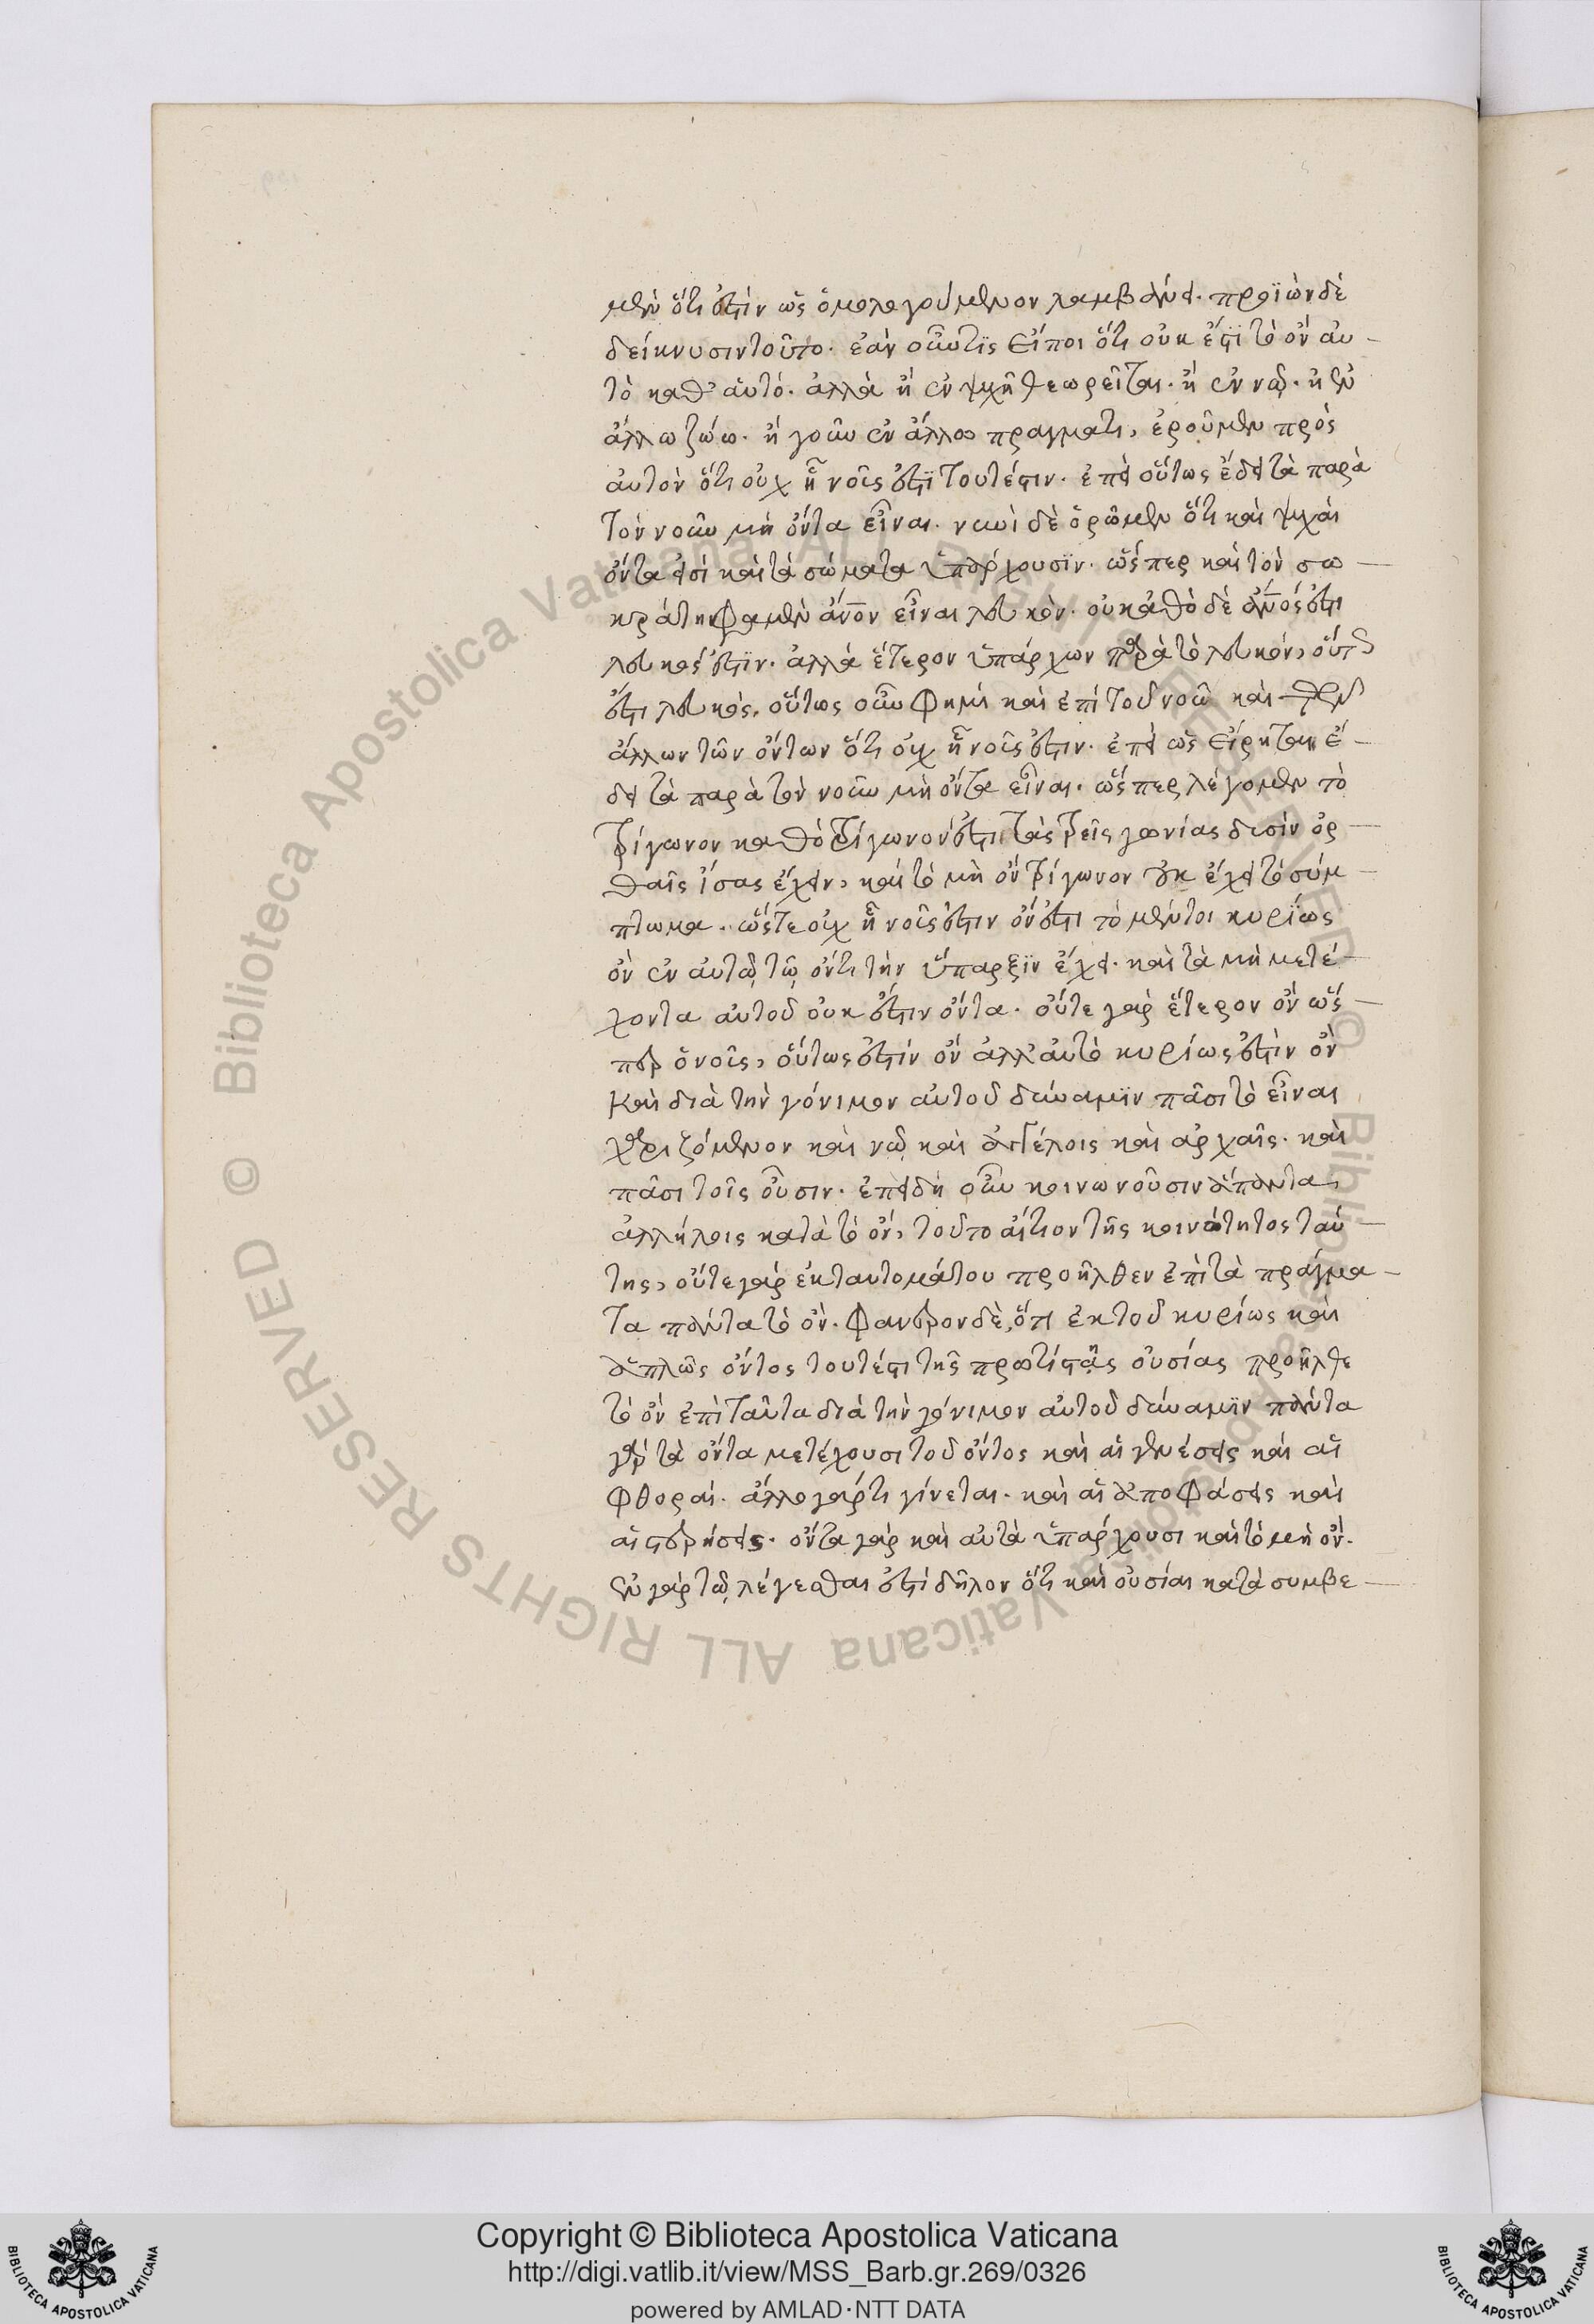 μὲν ὅτι ἐστὶν ὡς ὁμολογούμενον λαμβάνει. προϊὼν δὲ
δείκνυσιν τοῦτο. ἐὰν οὖν τὶς εἴποι ὅτι οὐκ ἔστι τὸ ὂν αὐ-
τὸ καθ' αὑτό. ἀλλὰ ἢ ἐν ψυχῆ θεωρεῖται. ἢ ἐν νῶ. ἢ ἐν
ἄλλω ζώω. ἢ γοῦν ἐν ἄλλοο πραγματι, ἐροῦμεν πρὸς
αὐτὸν ὅτι οὐχ ἧ νοῦς ἐστὶ τουτέστιν. ἐπεὶ οὕτως ἔδει τὰ παρὰ
τὸν νοῦν μὴ ὄντα εἶναι. νυνὶ δὲ ὁρῶμεν ὅτι καὶ ψυχαὶ
ὄντα εἰσὶ καὶ τὰ σώματα ὑπάρχουσϊν. ὥσπερ καὶ τὸν σω-
κράτην φαμὲν ἄνον εἶναι λευκὸν. οὐ καθὸ δὲ ἄνός ἐστι
λευκός ἐστϊν. ἀλλὰ ἕτερον ὑπάρχων παρὰ τὸ λευκόν, οὕτως
ἐστὶ λευκός. οὕτως οὖν φημὶ καὶ ἐπὶ τοῦ νοῦ καὶ τῶν
ἄλλων τῶν ὄντων ὅτι οὐχ ἧ νοῦς ἐστιν. ἐπεὶ ὡς εἴρηται ἔ-
δει τὰ παρὰ τὸν νοῦν μὴ ὄντα εἶναι. ὥσπερ λέγομεν τὸ
τρίγωνον καθὸ τρίγωνόν ἐστι τὰς τρεῖς γωνίας δυσὶν ὀρ-
θαῖς ἴσας ἔχειν, καὶ τὸ μὴ ὂν τρίγωνον οὐκ ἔχει τὸ σύμ-
πτωμα. ὥστε οὐχ ἧ νοῦς ἐστιν ὄν ἐστι τὸ μέντοι κυρίως
ὂν ἐν αὐτῶ τῶ ὄντι τὴν ὕπαρξϊν ἔχει. καὶ τὰ μὴ μετέ-
χοντα αὐτοῦ οὐκ ἔστιν ὄντα. οὔτε γὰρ ἕτερον ὂν ὥσ-
περ ὁ νοῦς, οὕτως ἐστὶν ὂν ἀλλ' αὐτὸ κυρίως ἐστὶν ὂν
καὶ διὰ τὴν γόνιμον αὐτοῦ δύναμϊν πᾶσι τὸ εἶναι
χαριζόμενον καὶ νῶ καὶ ἀγγέλοις καὶ ἀρχαῖς. καὶ
πᾶσι τοῖς οὖσιν. ἐπειδὴ οὖν κοινωνοῦσιν ἅπαντα
ἀλλήλοις κατὰ τὸ ὄν, τοῦτο αἴτιον τῆς κοινότητος ταύ-
της, οὔτε γὰρ ἐκ ταυτομάτου προῆλθεν ἐπὶ τὰ πράγμα-
τα πάντα τὸ ὂν. φανερὸν δὲ, ὅτι ἐκ τοῦ κυρίως καὶ
ἁπλῶς ὄντος τουτέστι τῆς πρωτίστης οὐσίας προῆλθε
τὸ ὂν ἐπὶ ταῦτα διὰ τὴν γόνιμον αὐτοῦ δύναμϊν πάντα
γὰρ τὰ ὄντα μετέχουσι τοῦ ὄντος καὶ αἱ γενέσεις καὶ αἱ
φθοραὶ. ἄλλο γάρ τι γίνεται. καὶ αἱ ἀποφάσεις καὶ
αἱ στερήσεις. ὄντα γὰρ καὶ αὐτὰ ὑπάρχουσι καὶ τὸ μὴ ὄν.
ἐν γὰρ τῶ λέγεσθαι ἐστὶ δῆλον ὅτι καὶ οὐσίαι κατὰ συμβε-
Copyright © Biblioteca Apostolica Vaticana
http://digi.vatlib.it/view/MSS_Barb.gr.269/0326
powered by AMLAD·NTT DATA
BIBLIOTECA APOSTOLICA VATICANA
BIBLIOTECA APOSTOLICA VATICANA
© Biblioteca Apostolica Vaticana ALL RIGHTS RESERVED © Biblioteca Apostolica Vaticana ALL RIGHTS RESERVED